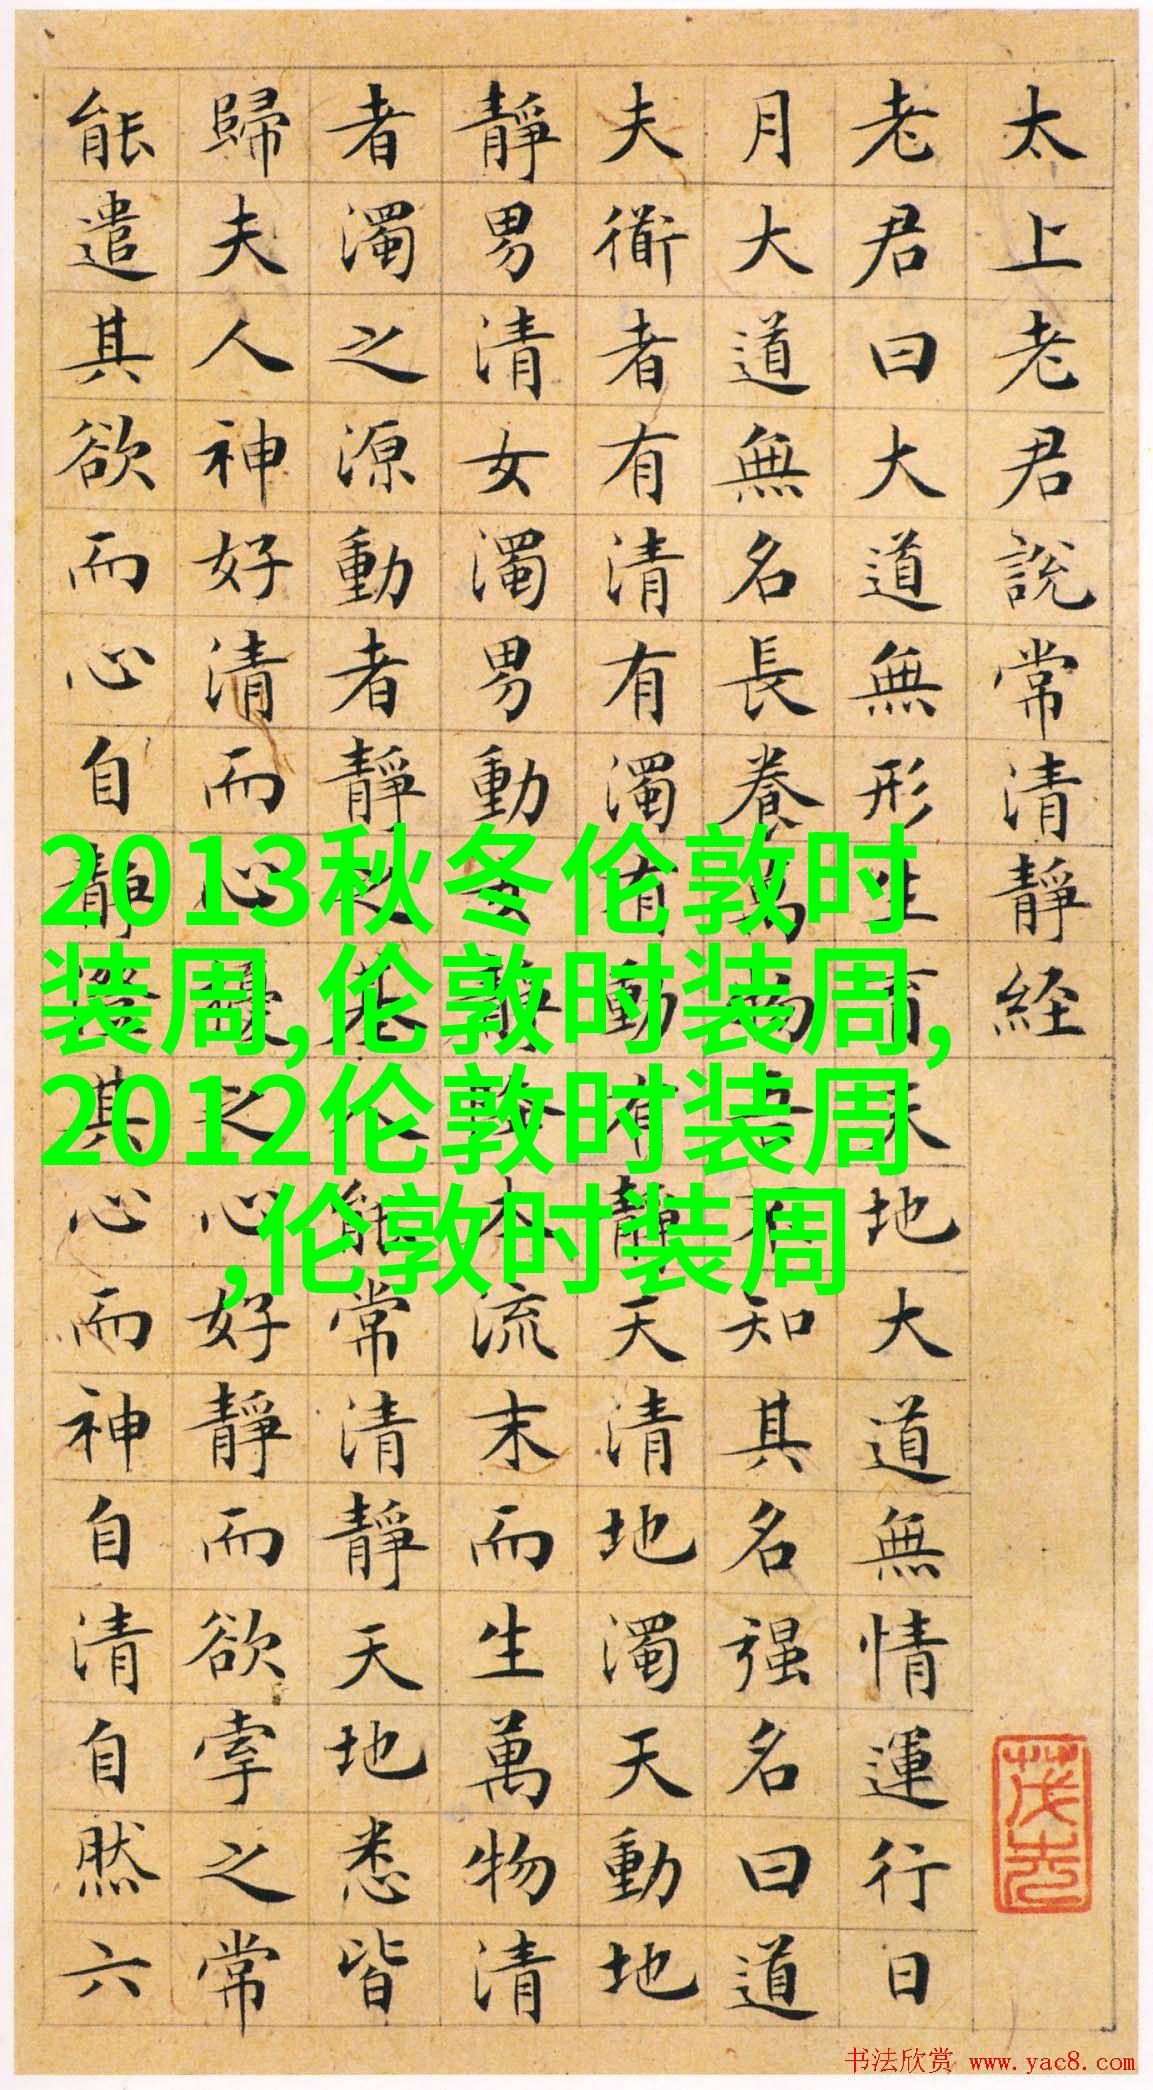 太上老君說常清靜経
老君曰大道無形生育天地大道無情運行日
月大道無名長養萬物吾不知其名强名曰道
夫衜者有清有濁有動有靜天清地濁天動地
靜男清女濁男動女靜降本流末而生萬物清
者濁之源動者靜之基人能常清靜天地悉皆
歸夫人神好清而心擾之心好靜而欲牽之常
能遣其欲而心自靜澄其心而神自清自然六
2013秋冬伦敦时
装周,伦敦时装周,
2012伦敦时装周
,伦敦时装周
书法欣赏 www.yac8.com